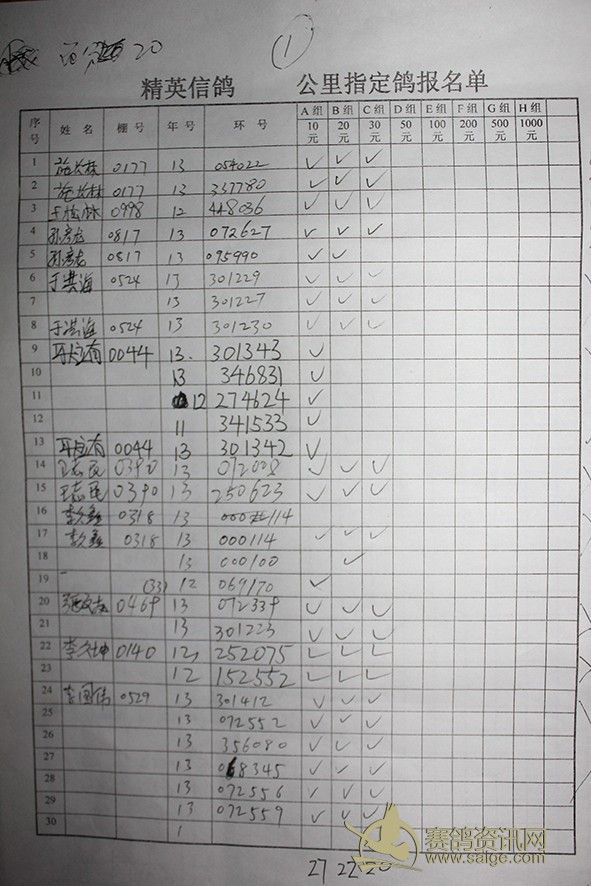 20 ①
精英信鸽 公里指定鸽报名单
序号 姓名 棚号 年号 环号 A组10元 B组20元 C组30元 D组50元 E组100元 F组200元 G组500元 H组1000元
1 施长林 0177 13 054022 ✓ ✓ ✓
2 施长林 0177 13 337780 ✓ ✓ ✓
3 0998 12 448036 ✓ ✓ ✓
4 孙彦龙 0817 13 072627 ✓ ✓ ✓
5 孙彦龙 0817 13 095990 ✓ ✓
6 于洪海 0524 13 301229 ✓ ✓ ✓
7 13 301227 ✓ ✓ ✓
8 于洪海 0524 13 301230 ✓ ✓ ✓
9 0044 13. 301343 ✓
10 13 346831 ✓
11 12 274624 ✓
12 11 341533 ✓
13 0044 13 301342 ✓
14 王志民 0390 13 072008 ✓ ✓ ✓
15 王志民 0390 13 250623 ✓ ✓ ✓
16 0318 13 114
17 0318 13 000114 ✓ ✓ ✓
18 13 000100 ✓
19 (33) 12 069170 ✓
20 0469 13 072339 ✓ ✓ ✓
21 13 301223 ✓ ✓ ✓
22 李久坤 0140 12 252075 ✓ ✓ ✓
23 12 152552 ✓ ✓ ✓
24 李国伟 0529 13 301412 ✓ ✓ ✓
25 13 072552 ✓ ✓ ✓
26 13 356080 ✓ ✓ ✓
27 13 068345 ✓ ✓ ✓
28 13 072556 ✓ ✓ ✓
29 13 072559 ✓ ✓ ✓
30
27 22 20
赛鸽资讯网
www.saige.com